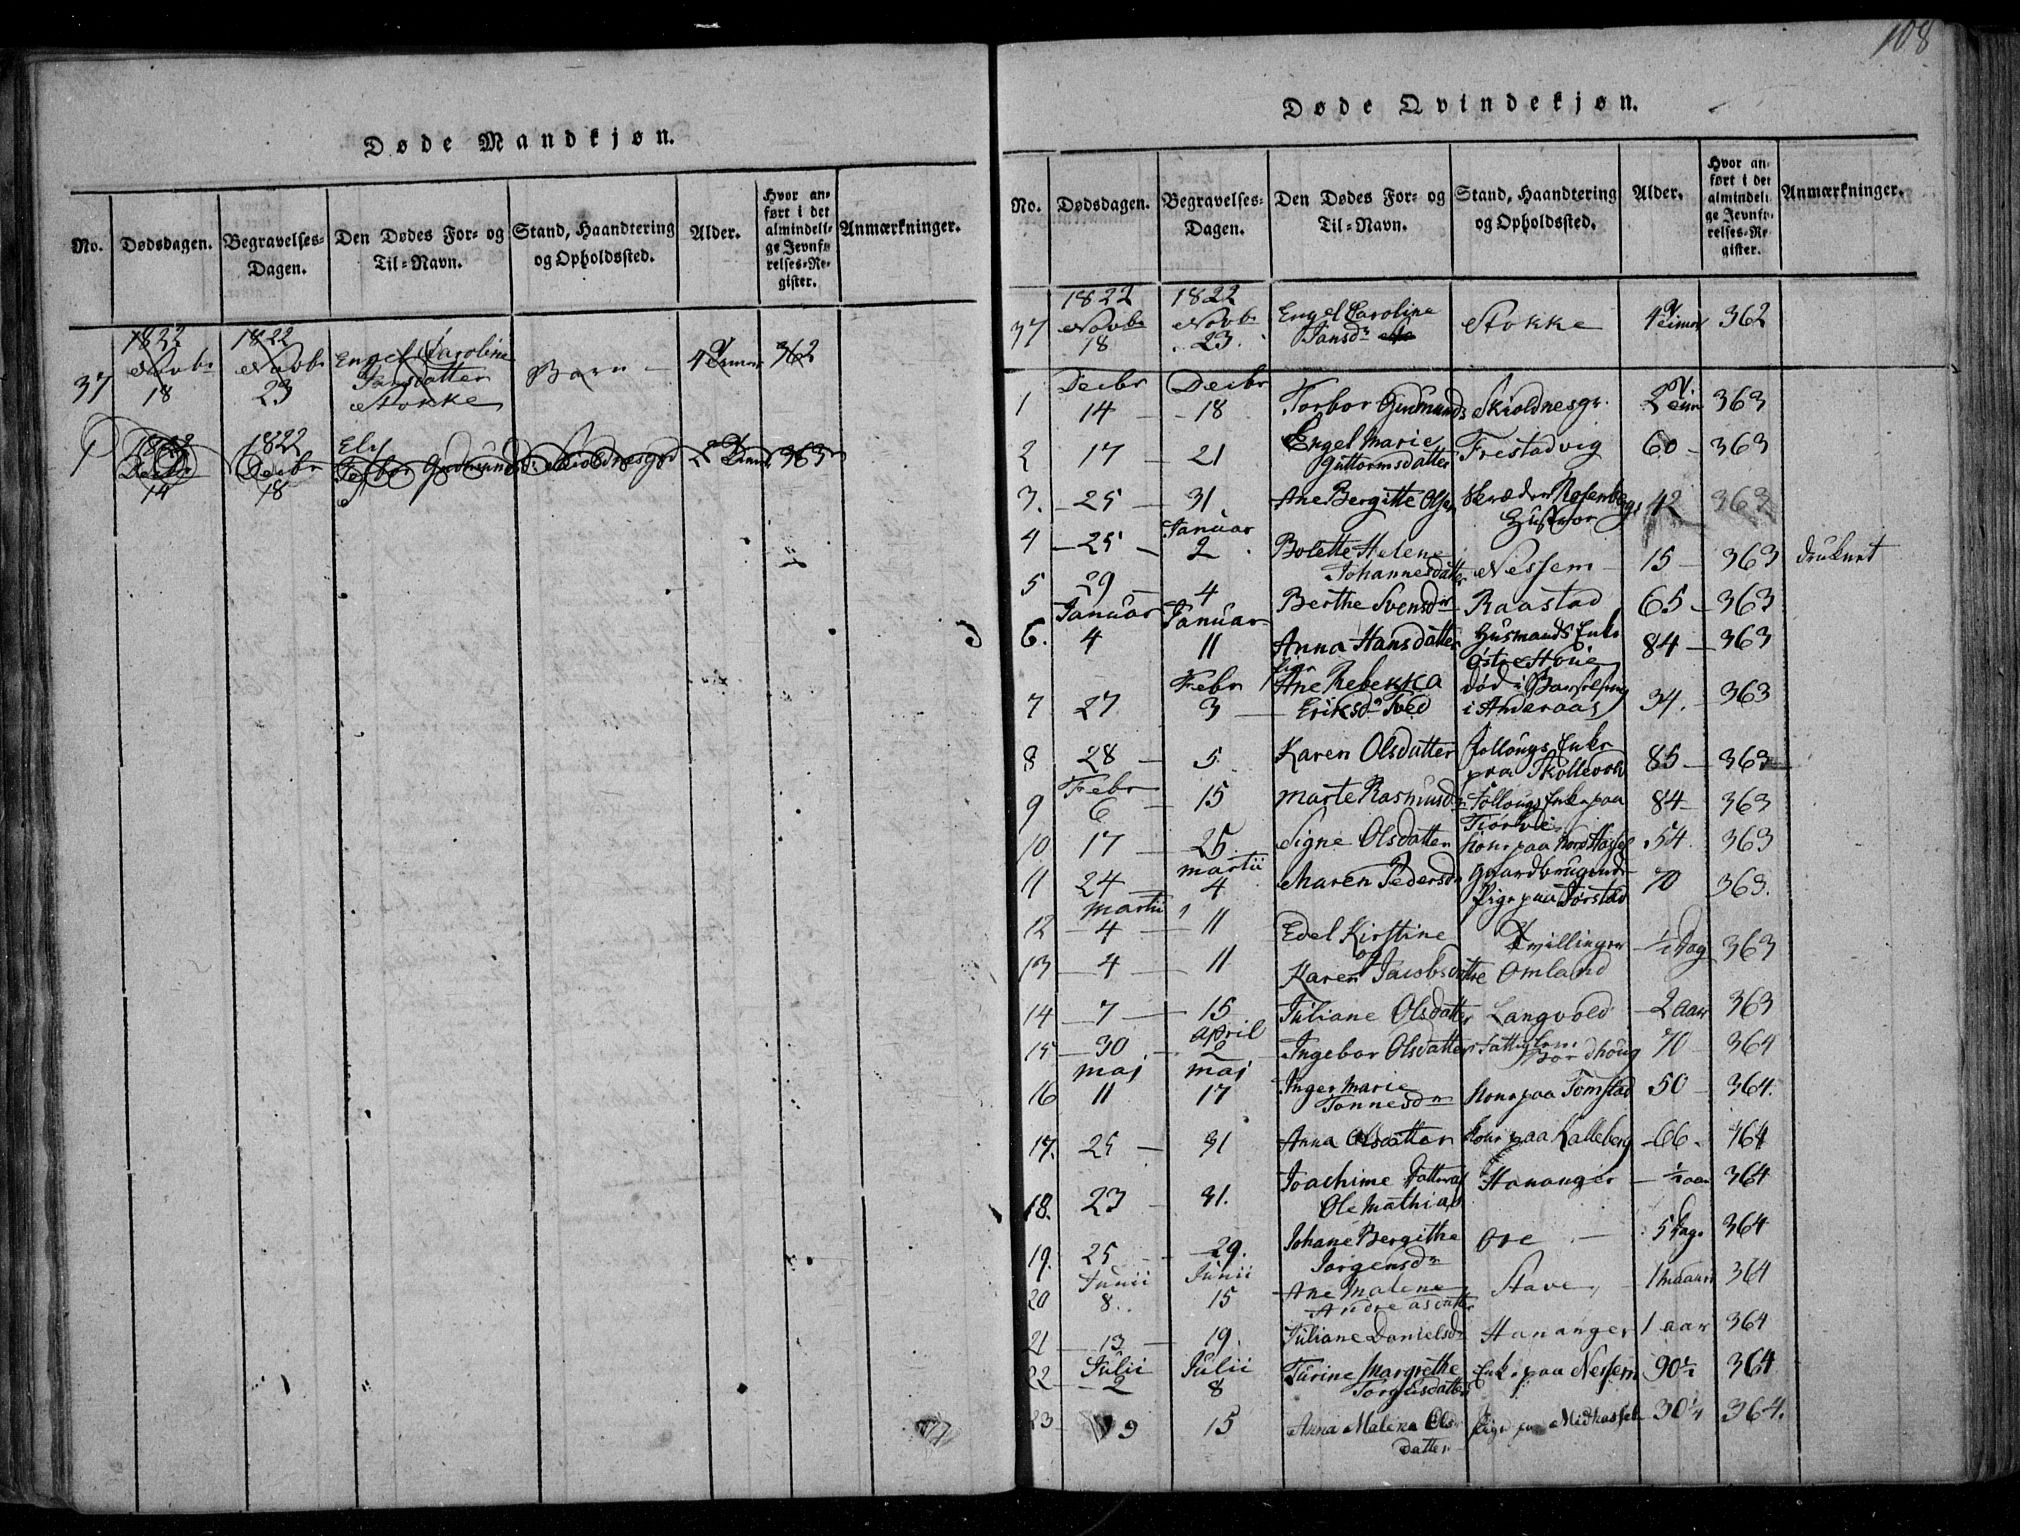 108
Døde Mandkjøn.
No. Dødsdagen. Begravelses-Dagen. Den Dødes For- og Til-Navn. Stand, Haandtering og Opholdssted. Alder. Hvor anført i det almindelige Jevnførelses-Register. Anmærkninger.
37 1822 Novbr 18 1822 Novbr 23 Engel Caroline Jansdatter Stokke Barn 4 362
1 1822 Decbr 14 1822 Decbr 18 Torbor Gudmunds Skioldnesgrd 2 363
Døde Qvindekjøn.
No. Dødsdagen. Begravelses-Dagen. Den Dødes For- og Til-Navn. Stand, Haandtering og Opholdssted. Alder. Hvor anført i det almindelige Jevnførelses-Register. Anmærkninger.
37 1822 Novbr 18 1822 Novbr 23. Engel Caroline Jansdr Stokke 4 362
1 Decbr 14 Decbr 18 Torbor Gudmunds Skioldnesgr. 2 363
2 17 21 Engel Marie Guttormsdatter Frestadvig 60 363
3. 25 31 Ane Bergitte Olsen Skræder Rosenbergs Hustroe 42 363
4 25 Januar 2 Bolette Helene Johannesdatter Nessem 15 363 druknet
5 29 4 Berthe Svensdr Raastad 65 363
6. Januar 4 Januar 11 Anna Hansdatter Husmands Enke Østre Houe 84 363
7 27 Febr 3 Pige Ane Rebekka Eriksdr Tved død i Barselseng i Anderaas 34. 363
8 28 5 Karen Olsdatter Follougs Enke paa Skollevold 85 363
9 Febr 6 15 Marte Rasmusdr Follougs Enke paa Tiørve 84 363
10 17 25. Signe Olsdatter Kone paa Nord Hassel 54. 363
11 24 Martii 4 Maren Pedersdr Gaardbrugende Pige paa Jørstad 70 363.
12 Martii 4 11 Edel Kirstine Tvillinger ½ Dag 363
og
13 4 11 Karen Jacobsdattre Omland
14 7 15 Juliane Olsdatter Langvold 2 aar 363
15 30 April 2 Ingebor Olsdatter Fattiglem Bordhoug 70 364
16 Maj 11 Maj 17 Inger Marie Tønnesdr Kone paa Tomstad 50 364.
17. 25 31 Anna Olsdatter Kone paa Kalleberg 66. 464
18. 23 31. Joachime Datter af Ole Mathias Hananger ½ aar 364
19. 25 29. Johane Bergithe Jørgensdr Ore 5 Dage 364
20 Junii 8. Junii 15 Ane Malene Andreasdatter Stave 1 maaned 364
21 13 19. Juliane Danielsdr Hananger 1 aar 364
22 Julii 2 Julii 8 Turine Margrethe Torgusdatter Enke paa Nessem 90½ 364
23 9 15 Anna Malena Olsdatter Pige paa Midhassel 30¼ 364.